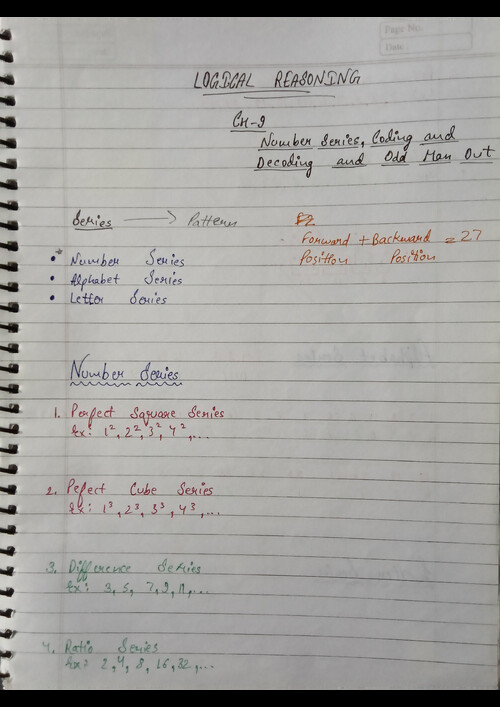 Page No.
Date
LOGICAL REASONING
CH-9
Number Series, Coding and
Decoding and Odd Man Out
Series → Patterns
F2
Forward + Backward = 27
Position Position
* Number Series
• Alphabet Series
• Letter Series
Number Series
1. Perfect Square Series
Ex: 1², 2², 3², 4², ...
2. Pefect Cube Series
Ex: 1³, 2³, 3³, 4³, ...
3. Difference Series
Ex: 3, 5, 7, 9, 11, ...
4. Ratio Series
Ex: 2, 4, 8, 16, 32, ...